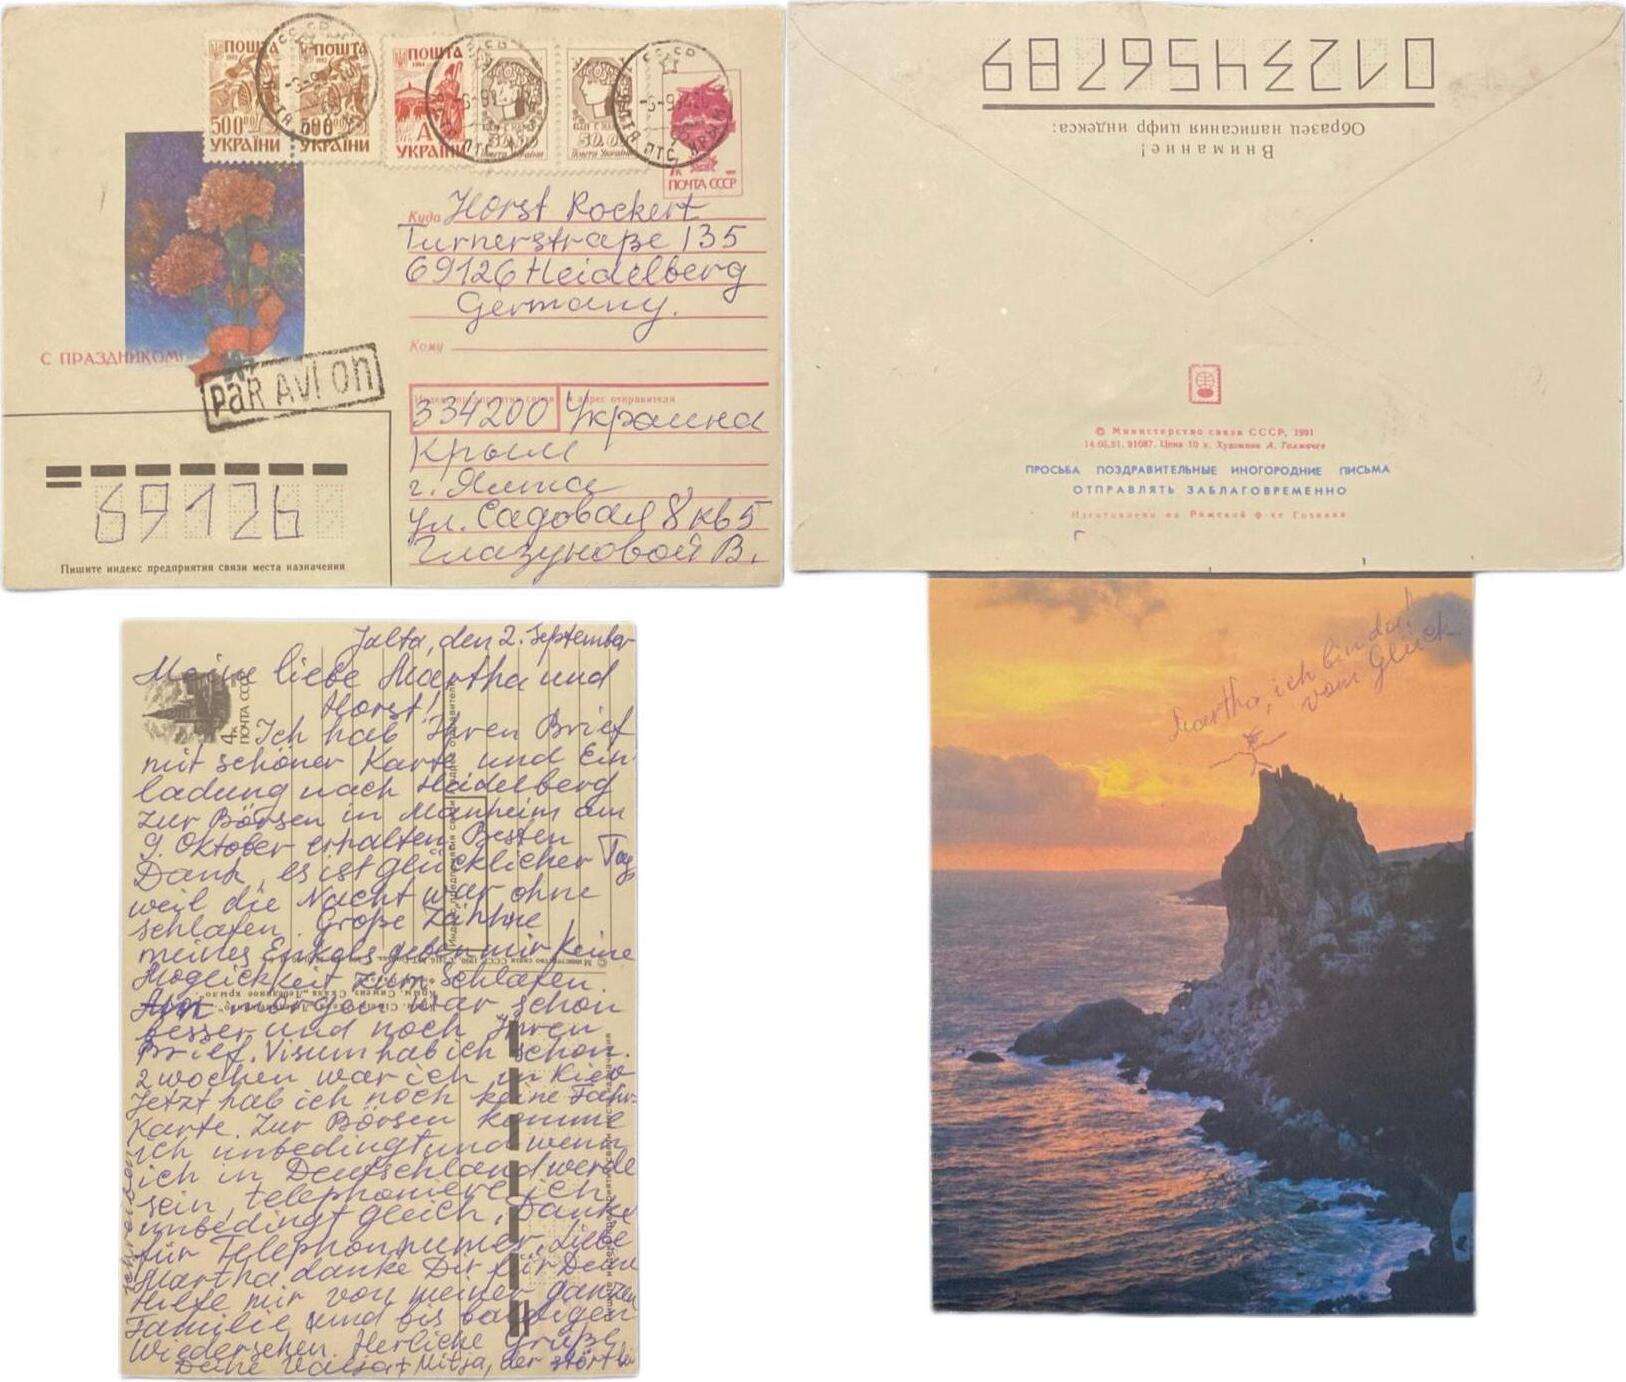 ПОШТА
500⁰⁰
УКРАЇНИ
ПОШТА
500⁰⁰
УКРАЇНИ
ПОШТА
А
УКРАЇНИ
50.00
Пошта України
СССР
7к
ПОЧТА СССР
С ПРАЗДНИКОМ!
PAR AVION
Куда Horst Rockert
Turnerstraße 135
69126 Heidelberg
Germany.
Кому
334200 Украина
Крым
г. Ялта
ул. Садовая 8 кв 5
Глазуновой В.
69126
Пишите индекс предприятия связи места назначения
0123456789
Образец написания цифр индекса:
Внимание!
© Министерство связи СССР, 1991
14.06.91. 91087. Цена 10 к. Художник А. Толмачев
ПРОСЬБА ПОЗДРАВИТЕЛЬНЫЕ ИНОГОРОДНИЕ ПИСЬМА
ОТПРАВЛЯТЬ ЗАБЛАГОВРЕМЕННО
Изготовлено на Рижской ф-ке Гознака
Jalta, den 2. September
Meine liebe Martha und
Horst!
4к
ПОЧТА СССР
Ich hab Ihren Brief
mit schöner Karte und Ein
ladung nach Heidelberg
zur Börsen in Manheim am
9. Oktober erhalten. Besten
Dank, es ist glücklicher Tag
weil die Nacht war ohne
schlafen. Große Zähne
meines Enkels geben mir keine
Moglickkeit zum Schlafen.
morgen war schon
besser und noch Ihren
Brief. Visum hab ich schon.
2 wochen war ich in Kiev
Jetzt hab ich noch keine Fahr-
Karte. Zur Börsen komme
ich unbedingt und wenn
ich in Deutschland werde
sein, telephoniere ich
unbedingt gleich, Danke
für Telephonnumer. Liebe
Martha danke Dir für Deine
Hilfe mir von meiner ganzen
Familie und bis baldigen
Wiedersehen. Herliche Grüße.
Deine Valja + Mitja, der stört bei
schreiben
Martha, ich bin da!
vom Glück